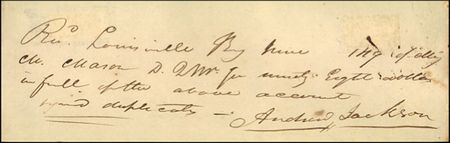 Recd. Louisville Ky June 1819 of
M. Mason D. QMr. for ninety Eight dollars
in full of the above account
signed duplicats — Andrew Jackson